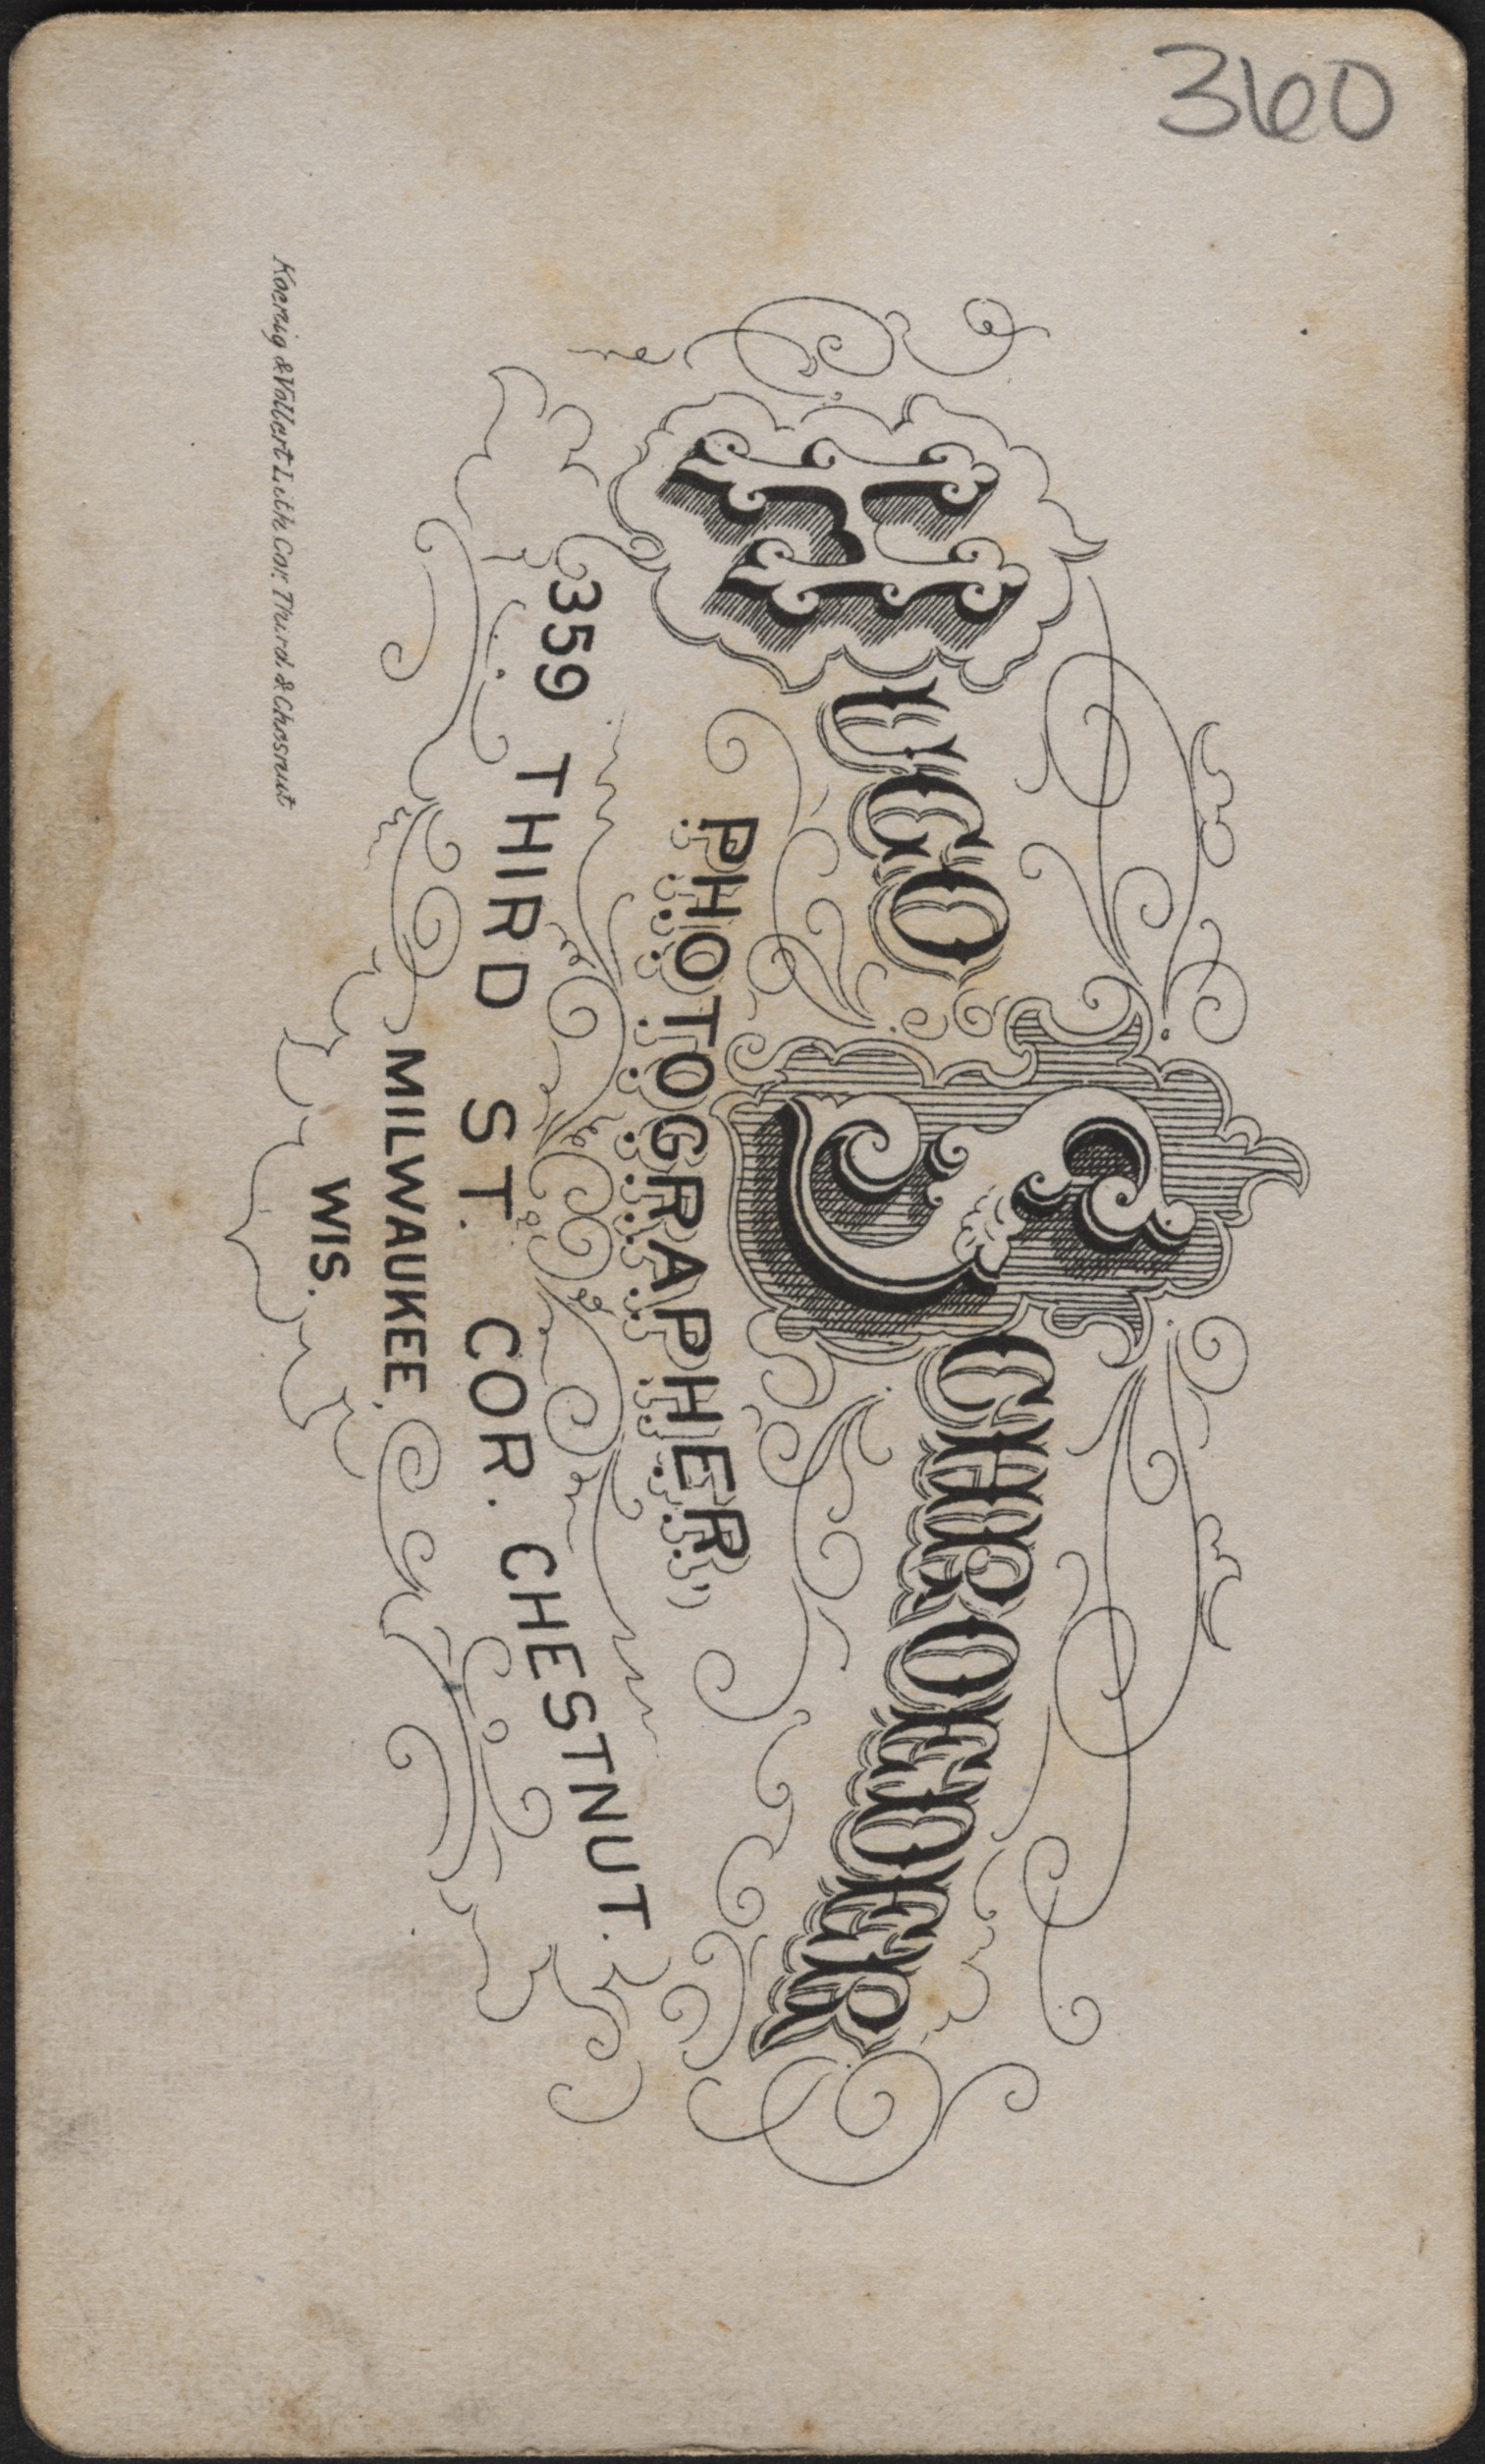 360
HUGO SCHROEDER
PHOTOGRAPHER
359 THIRD ST. COR. CHESTNUT.
MILWAUKEE,
WIS.
Koenig & Vollert Lith. Cor. Third. & Chesnut